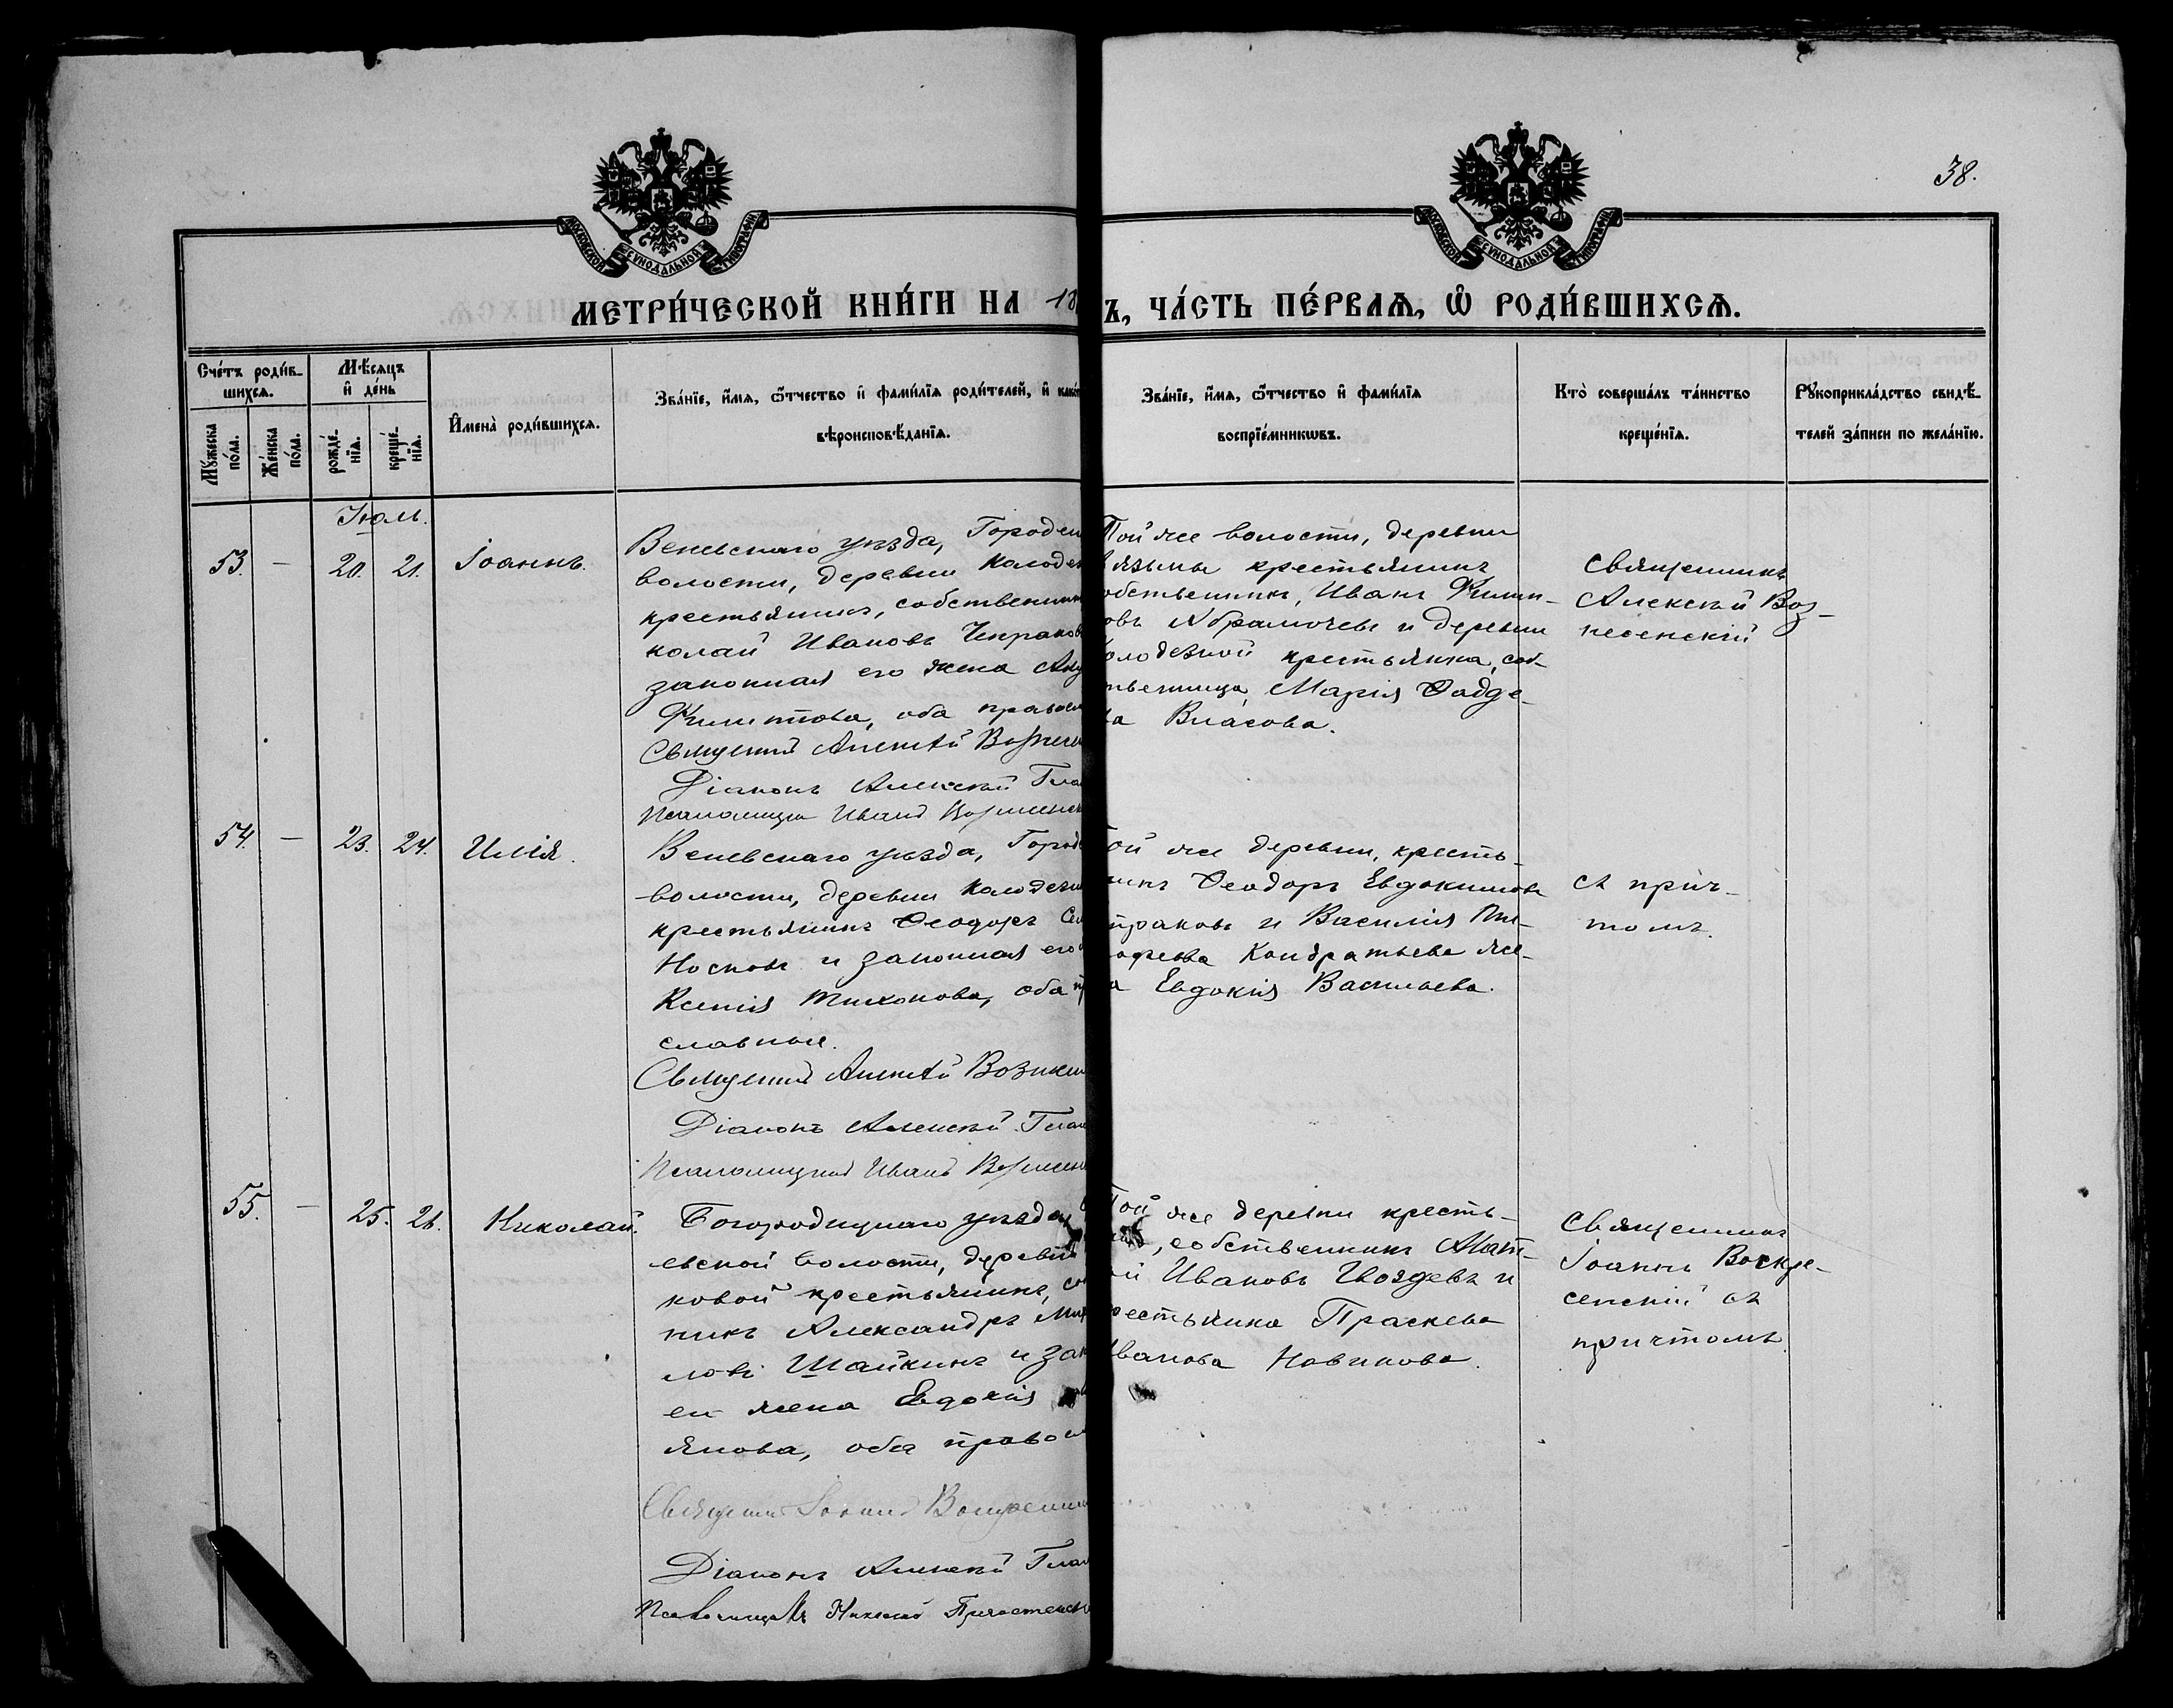 38.
МОСКОВСКОЙ СѴНОДАЛЬНОЙ ТИПОГРАФІИ
МОСКОВСКОЙ СѴНОДАЛЬНОЙ ТИПОГРАФІИ
МЕТРИ́ЧЕСКОЙ КНИ́ГИ НА 18
Ъ, ЧА́СТЬ ПЕ́РВАѦ, Ѽ РОДИ́ВШИХСѦ.
Сче́тъ роди́в-
шихсѧ.
Мꙋ́жеска
по́ла.
Же́нска
по́ла.
Мѣ́сѧцъ
и҆ де́нь
рожде́-
нїѧ.
креще́-
нїѧ.
И҆мена̀ роди́вшихсѧ.
Зва́нїе, и҆́мѧ, ѻ҆́тчество и҆ фами́лїѧ роди́телей, и҆ како́
вѣроисповѣ́данїѧ.
Зва́нїе, и҆́мѧ, ѻ҆́тчество и҆ фами́лїѧ
воспрїе́мникѡвъ.
Кто̀ соверша́лъ та́инство
креще́нїѧ.
Рꙋкоприкла́дство свидѣ́-
телей за́писи по жела́нїю.
Іюль.
53. — 20. 21. Іоаннъ.
Веневскаго уѣзда, Городен
волости, деревни Колоде
крестьянинъ, собственник
колай Ивановъ Чепраков
законная его жена Аку
Филиппова, оба правосл
Священник Алексѣй Вознесе
Діаконъ Алексѣй Глаг
Псаломщик Иванъ Вознесенск
Той же волости, деревни
Вязьмы крестьянинъ
обственникъ, Иванъ Филип-
овъ Абрамочевъ и деревни
олодезной крестьянка, соб-
твенница, Марія Ѳадде-
ва Власова.
Священникъ
Алексѣй Воз-
несенскій
54. — 23. 24. Илія.
Веневскаго уѣзда, Город
волости, деревни Колодезн
крестьянинъ Ѳеодоръ Се
Носковъ и законная его
Ксенія Тихонова, оба п
славные.
Священник Алексѣй Вознесен
Діаконъ Алексѣй Глаг
Псаломщикъ Иванъ Вознесен
ой же деревни, кресть-
нинъ Ѳеодоръ Евдокимовъ
праковъ и Василія Ти-
оѳеева Кондратьева же-
а Евдокія Васильева.
съ прич-
томъ.
55. — 25. 26. Николай.
Богородицкаго уѣзда,
евской волости, деревни
ковой крестьянинъ, со
никъ Александръ Мих
ловъ Шайкинъ и зак
ея жена Евдокія
янова, оба правосл
Священник Іоаннъ Воскресенск
Діаконъ Алексѣй Глаг
Псаломщикъ Николай
Той же деревни кресть-
, собственникъ Мат-
ѳй Ивановъ Гвоздевъ и
рестьянка Праскева
Иванова Новикова.
Священникъ
Іоаннъ Воскре-
сенскій съ
причтомъ.